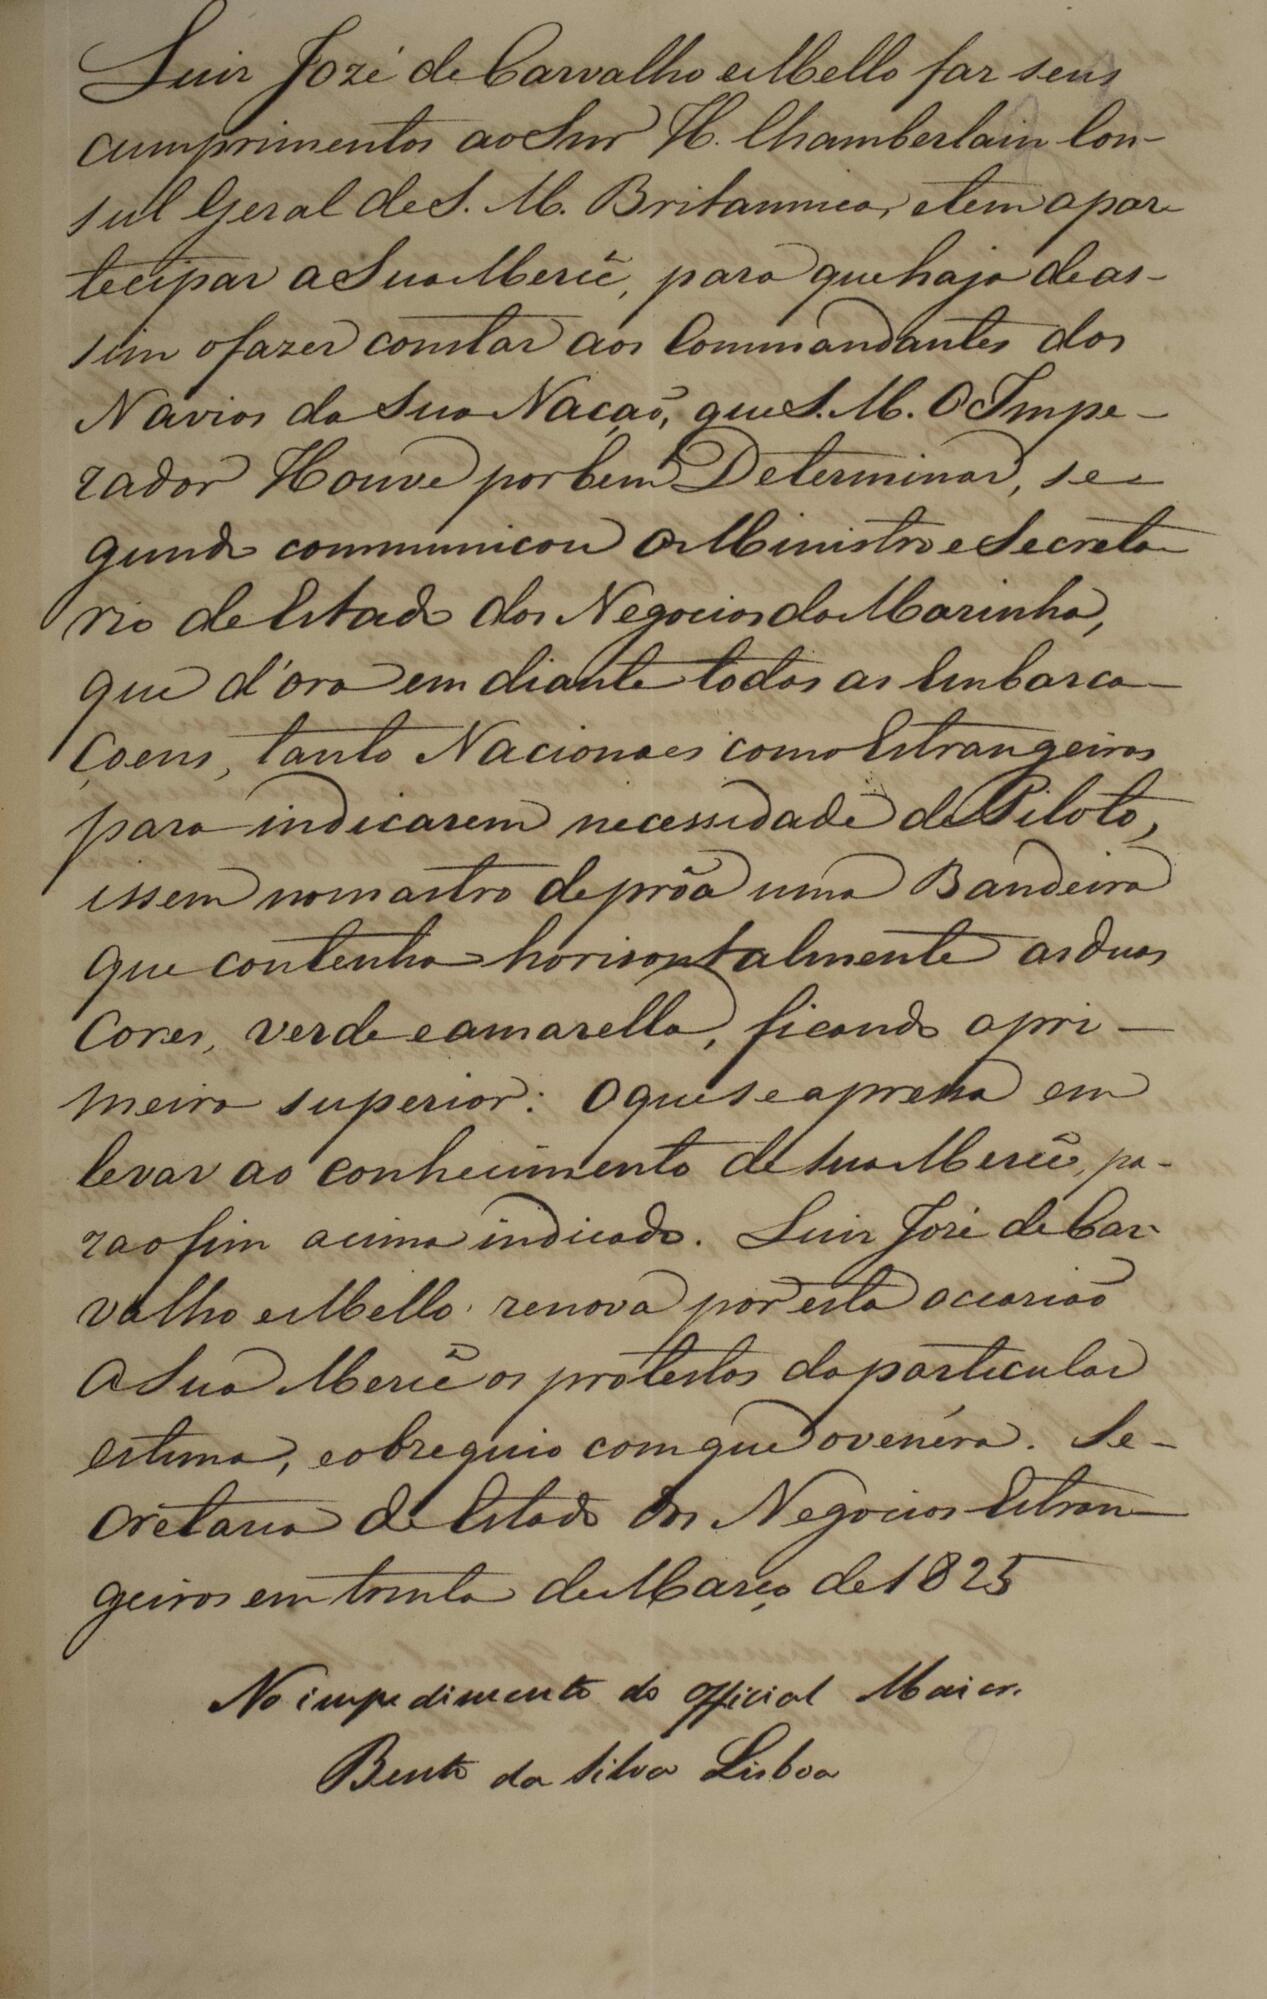 Luiz Jozé de Carvalho e Mello faz seus
cumprimentos ao Snr H. Chamberlain Con-
sul Geral de S. M. Britannica, e tem a par-
tecipar a Sua Mercê, para que haja de as-
sim o fazer constar aos Commandantes dos
Navios da Sua Nação, que S. M. O Impe-
rador Houve por bem Determinar, se-
gundo communicou o Ministro e Secreta-
rio de Estado dos Negocios da Marinha,
que d'ora em diante todas as Embarca-
çoens, tanto Nacionaes como Estrangeiras
para indicarem necessidade de Piloto,
issem no mastro de prôa uma Bandeira
que contenha horisontalmente as duas
Cores, verde e amarella, ficando a pri-
meira superior: O que se apressa em
levar ao conhecimento de Sua Mercê, pa-
ra o fim acima indicado. Luiz José de Car-
valho e Mello renova por esta occasião
a Sua Mercê os protestos da particular
estima, e obzequio com que o venéra. Se-
cretaria de Estado dos Negocios Estran-
geiros em trinta de Março de 1825
No impedimento do Official Maior.
Bento da Silva Lisboa